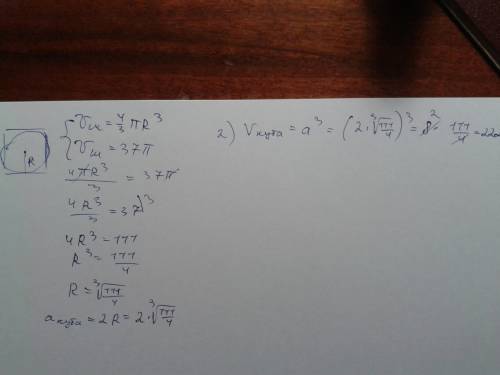 R
{ Vш = 4/3 πR³
{ Vш = 37π
4πR³/3 = 37π
4R³/3 = 37 )³
4R³ = 111
R³ = 111/4
R = ³√(111/4)
a куба = 2R = 2·³√(111/4)
2) V куба = a³ = (2·³√(111/4))³ = 8² · 111/4 = 222